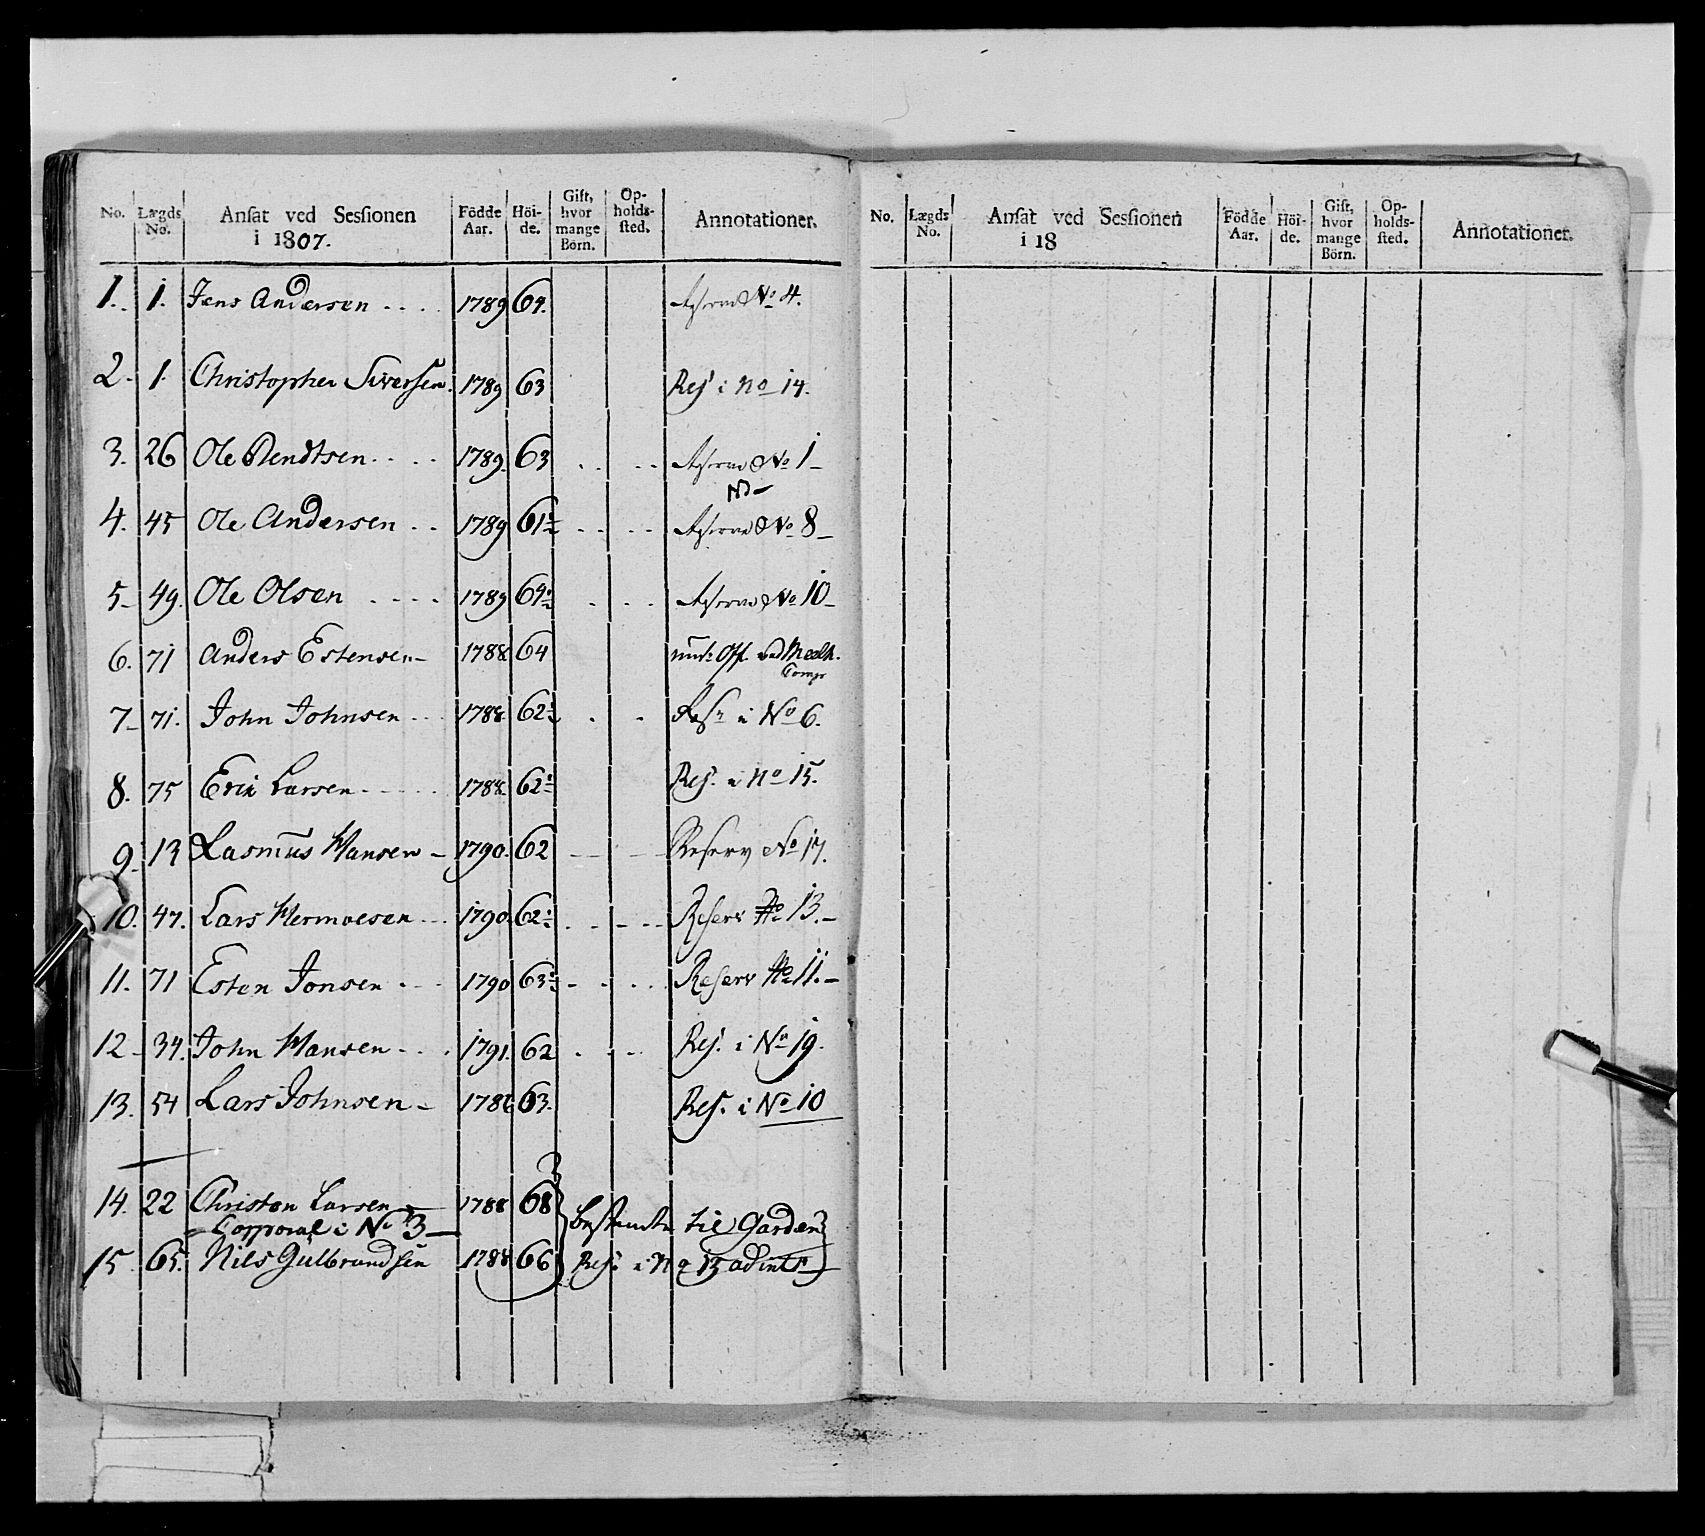 No. Lægds No. Ansat ved Sessionen i 1807. Födde Aar. Höide. Gift, hvor mange Börn. Opholdssted. Annotationer.
1. 1. Jens Andersen 1789 64. No 4.
2. 1. Christopher Siversen. 1789 63 Res i No 14.
3. 26 Ole Bendtsen 1789. 63 No 1
4. 45 Ole Andersen 1789 61½ No 8
5 49. Ole Olsen 1789 64½ No 10
6. 71 Anders Estensen 1788 64 ved
Comp
7 71. John Johnsen 1788 62½ Res i No 6.
8. 75 Erik Larsen 1788. 62½ Res. i No 15.
9 13 Rasmus Hansen 1790. 62 Reserv No 17.
10. 47. Lars Hermoesen 1790. 62½ Reserv No 13.
11. 71 Esten Jonsen 1790 63½ Reserv No 11.
12 34. John Hansen 1791. 62 Res. i No 19.
13. 54 Lars Johnsen 1786 63. Res. i No 10
14. 22 Christen Larsen 1788 68
Corporal i No 3
bestemte til Garden
15. 65. Nils Gulbrandsen 1788 66 Res i No 13
No. Lægds No. Ansat ved Sessionen i 18 Födde Aar. Höide. Gift, hvor mange Börn. Opholdssted. Annotationer.